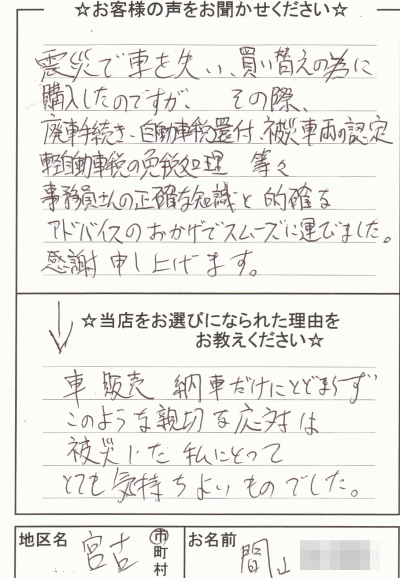 ☆お客様の声をお聞かせください☆
震災で車を失い、買い替えの為に
購入したのですが、その際、
廃車手続き、自動車税還付、被災車両の認定
軽自動車税の免税処理 等々
事務員さんの正確な知識と的確な
アドバイスのおかげでスムーズに運びました。
感謝申し上げます。
☆当店をお選びになられた理由を
お教えください☆
車 販売 納車だけにとどまらず
このような親切な応対は
被災した私にとって
とても気持ちよいものでした。
地区名 宮古 市町村 お名前 間山